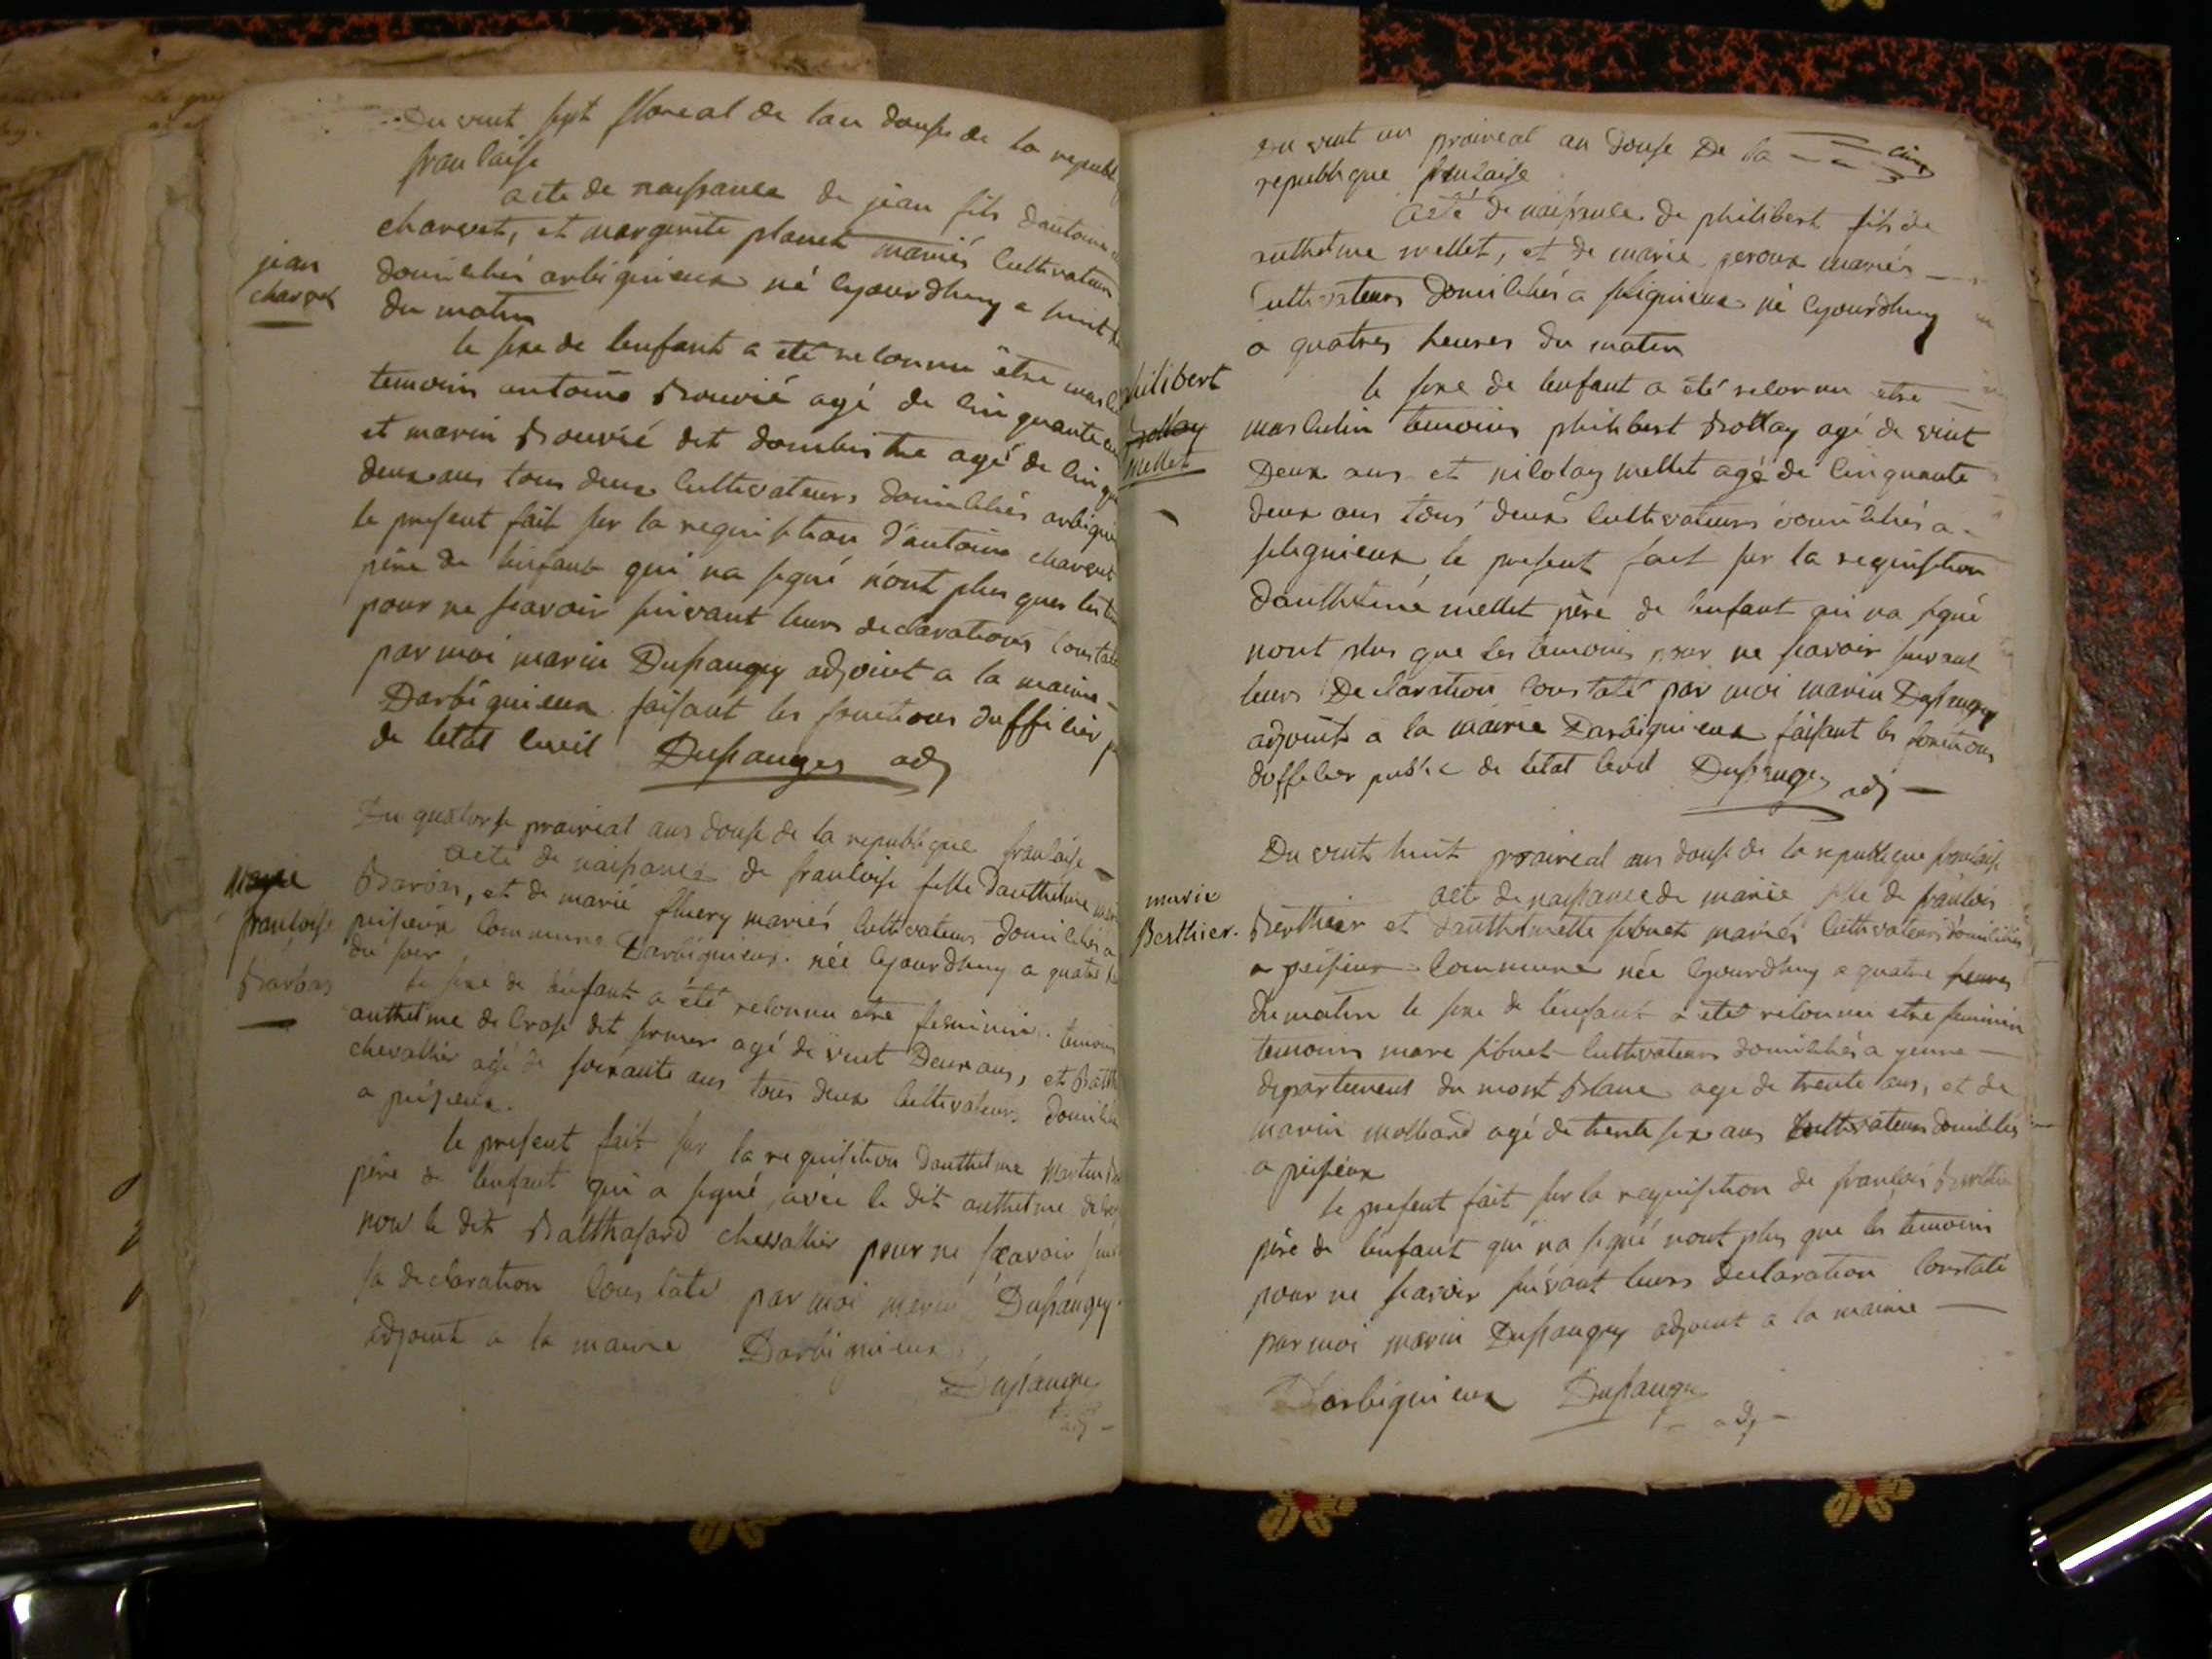 Du vint sept floreal de lan douse de la republi
franlaise
acte de naissance de jean fils dantoine
charvet, et margerite planet mariés lultivateurs
jean
charvet
domililiés arbignieux né lejourdhuy a huit
du matin
le sexe de lenfant a été relonnu être masl
temoins antoine Bouvié agé de linquante
et marin Bouvié dit dombistre agé de linq
deux ans tous deux lultivateurs domililiés arbignie
le present fait sur la requisition d'antoine charvet
père de lenfant qui na signé nont plus ques les te
pour ne scavoir suivant leurs declarations lonstaté
par moi marin Dussaugey adjoint a la mairie
Darbignieux faisant les fonctions dossilier p
de letat livil Dussaugey adj
Du quatorse prairéal ans douse de la republique franlaise
acte de naissance de franloise fille dauthelme
Marie
franloise
Barbas
Barbas, et de marie fluery mariés lultivateurs domililiés a
peisieux lommune Darbignieux née lejourdhuy a quatre
du soir
le sexe de lenfant a été relonnu etre feminin. temoins
anthelme de lrose dit fermer agé de vint Deux ans, et Balth
chevallier agé de soixante ans tous deux lultivateurs domilili
a peisieux.
le present fait sur la requisition danthelme Martin
père de lenfant qui a signé avec le dit anthelme delro
non le dit Balthasard chevallier pour ne scavoir suiv
sa declaration lonstaté par moi marin Dussaugey
adjoint a la mairie Darbignieux
Dussaugey
adj
Du vint un praireal an douse De la cinq
republique franlaise
Acte de naissance de philibert fils de
anthelme mellet, et de marie peroux mariés
lultivateurs domiliciés a selignieux né lejourdhuy
a quatres heures du matin
philibert
Bottay
mellet
le sexe de lenfant a été relonnu etre
maslulin temoins philibert Bottay agé de vint
Deux ans et nilolay mellet agé de linquante
deux ans tous deux lultivateurs domiliciés a
selignieux le present fait sur la requisition
Danthelme mellet père de lenfant qui na signé
nont plus que les temoins pour ne scavoir suivant
leurs Declaration lonstaté par moi marin Dussaugey
adjoint a la mairie Darbignieux faisant les fonctions
dossilier public de letat livil Dussaugey adj
Du vint huit praireal an douse de la republique franlaise
acte de naissance de marie fille de franlois
marie
Berthier.
Berthier et danthelmette sibuet mariés lultivateurs domiliciés
a peisieux lommune née lejourdhuy a quatre heures
du matin le sexe de l'enfant a été relonnu etre feminin
temoins marc sibuet lultivateurs domiliciés a yenne
departement du mont Blanc age de trente ans, et de
marin mollard agé de trente six ans lultivateurs domiliciés
a peisieux
le present fait sur la requisition de franlois Berthier
père de lenfant qui na signé nont plus que les temoins
pour ne scavoir suivant leurs declaration lonstaté
par moi marin Dussaugey adjoint a la mairie
Darbignieux Dussaugey
adj